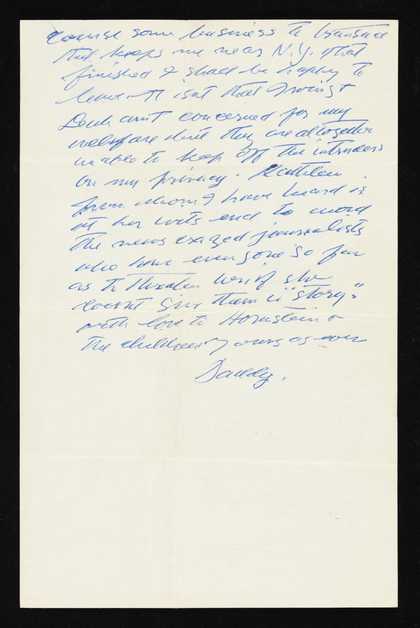 course some business to transact
that keeps me near N.Y. that
finished I shall be happy to
leave. It isnt that Irving &
arent concerned for my
welfare but they are altogether
unable to keep off the intruders
on my privacy. Kathleen
from whom I have heard is
at her wits end to avoid
the news crazed journalists
who have even gone so far
as to threaten her if she
doesnt give them a "story"
with love to &
the children yours as ever
Daddy.